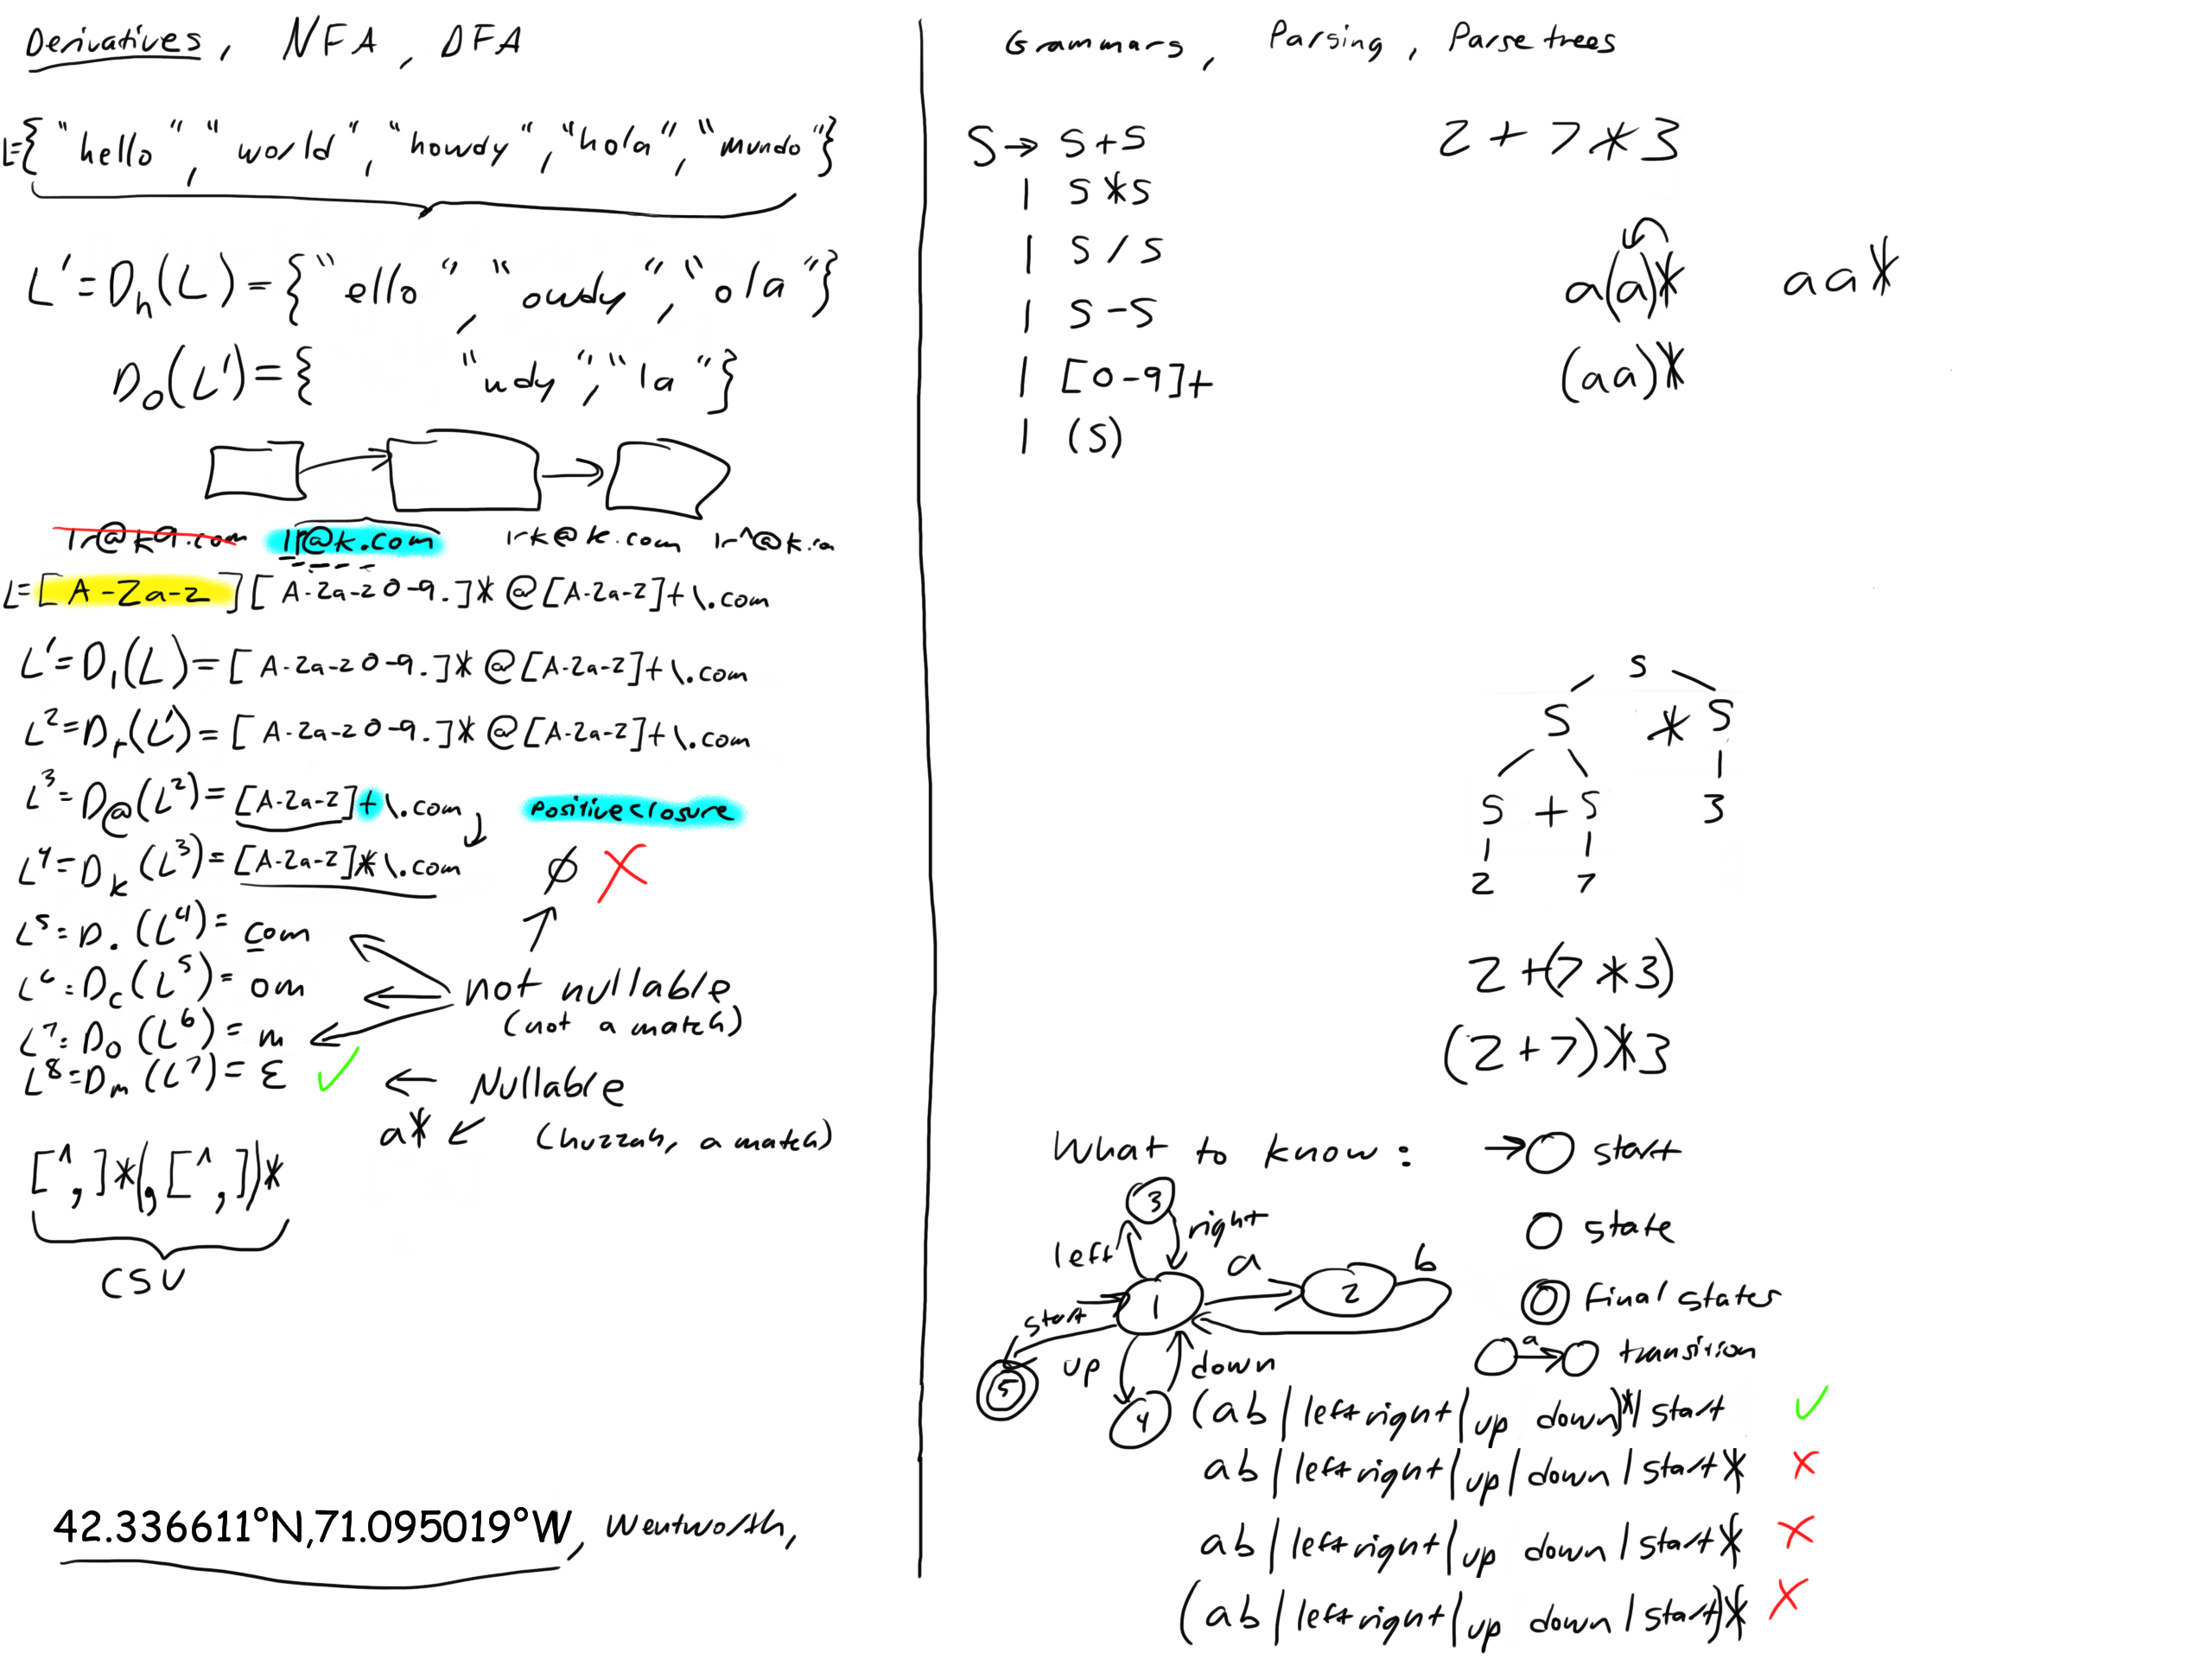 Derivatives, NFA, DFA
L={"hello", "world", "howdy", "hola", "mundo"}
L'=Dh(L)={"ello", "owdy", "ola"}
Do(L')={ "wdy", "la"}
lr@k9.com lr@k.com lrk@k.com lr^@k.co
L=[A-Za-z][A-Za-z0-9.]*@[A-Za-z]+\.com
L'=Dl(L)=[A-Za-z0-9.]*@[A-Za-z]+\.com
L²=Dr(L')=[A-Za-z0-9.]*@[A-Za-z]+\.com
L³=D@(L²)=[A-Za-z]+\.com Positive closure
L⁴=Dk(L³)=[A-Za-z]*\.com ∅ ✗
L⁵=D.(L⁴)=com
L⁶=Dc(L⁵)=om ← not nullable
(not a match)
L⁷=Do(L⁶)=m
L⁸=Dm(L⁷)=ε ✓ ← Nullable
a* ↙ (huzzah, a match)
[^,]*(,[^,])*
CSV
42.336611°N,71.095019°W, Wentworth,
Grammars, Parsing, Parse trees
S→ S+S
| S*S
| S/S
| S-S
| [0-9]+
| (S)
2+7*3
a(a)* aa*
(aa)*
S
S * S
S + S 3
2 7
2+(7*3)
(2+7)*3
What to know: →○ start
○ state
◎ final states
○ a→○ transition
3
left right
a b
start 1 2
5 up down
4
(ab|left right|up down)*|start ✓
ab|left right|up|down|start* ✗
ab|left right|up down|start* ✗
(ab|left right|up down|start)* ✗